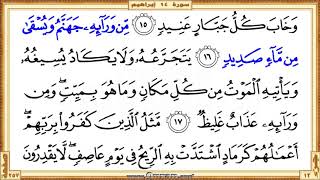 سورة ١٤ إبراهيم
وَخَابَ كُلُّ جَبَّارٍ عَنِيدٍ ١٥ مِن وَرَآئِهِۦ جَهَنَّمُ وَيُسْقَىٰ
مِن مَّآءٍ صَدِيدٍ ١٦ يَتَجَرَّعُهُۥ وَلَا يَكَادُ يُسِيغُهُۥ
وَيَأْتِيهِ ٱلْمَوْتُ مِن كُلِّ مَكَانٍ وَمَا هُوَ بِمَيِّتٍ ۖ وَمِن
وَرَآئِهِۦ عَذَابٌ غَلِيظٌ ١٧ مَّثَلُ ٱلَّذِينَ كَفَرُوا۟ بِرَبِّهِمْ ۖ
أَعْمَٰلُهُمْ كَرَمَادٍ ٱشْتَدَّتْ بِهِ ٱلرِّيحُ فِى يَوْمٍ عَاصِفٍ ۖ لَّا يَقْدِرُونَ
٢٥٧
١٣